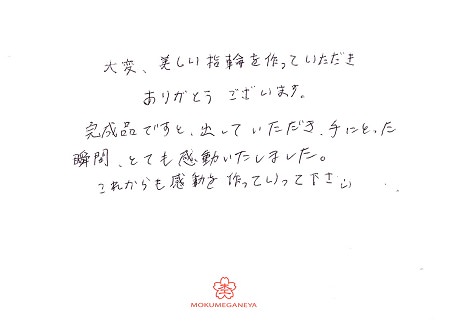 大変、美しい指輪を作っていただき
ありがとうございます。
完成品ですと、出していただき、手にとった
瞬間、とても感動いたしました。
これからも感動を作っていって下さい
MOKUMEGANEYA